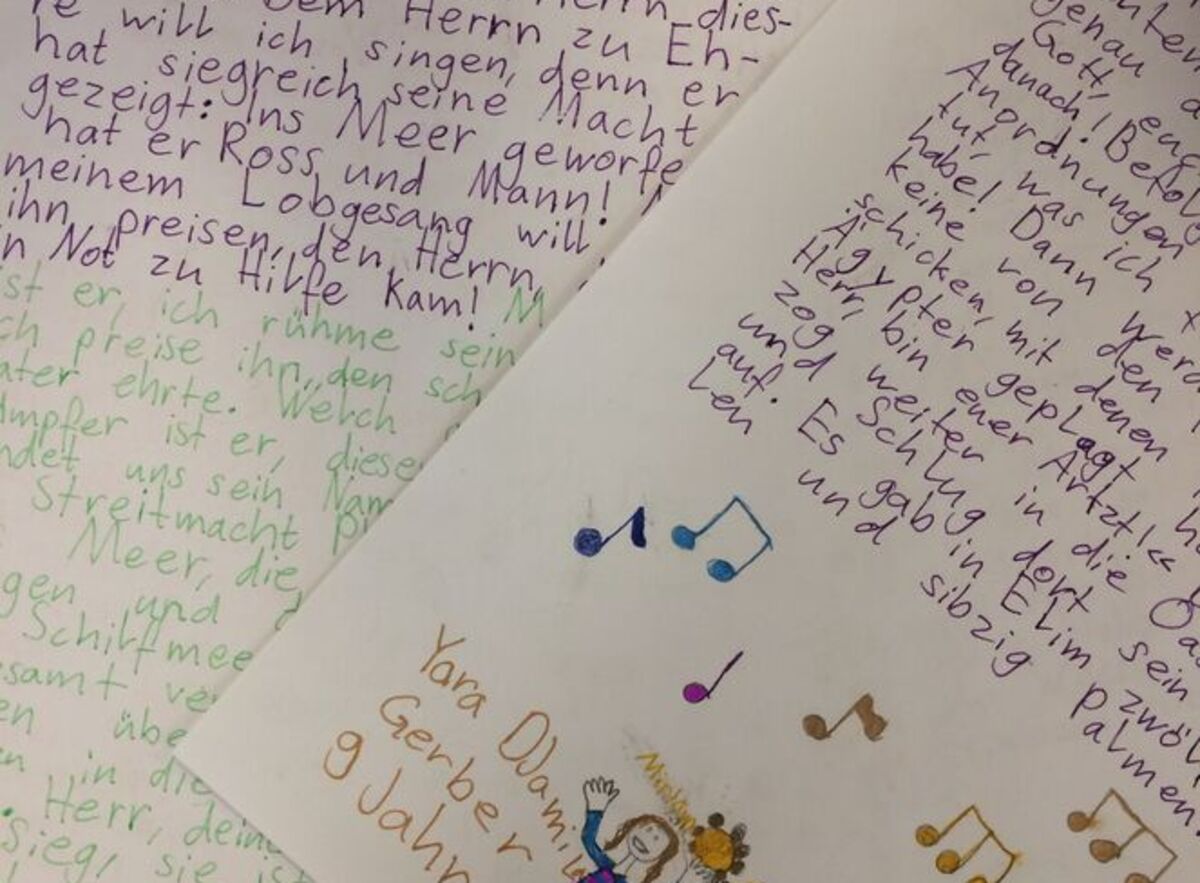 Herrn dies-
Dem Herrn zu Eh-
re will ich singen, denn er
hat siegreich seine Macht
gezeigt: Ins Meer geworfe
hat er Ross und Mann!
meinem Lobgesang will
ihn preisen, den Herrn,
in Not zu Hilfe kam! M
ist er, ich rühme sein
ch preise ihn, den sch
ater ehrte. Welch
ämpfer ist er, diese
ndet uns sein Nam
Streitmacht
Meer, die
gen und
Schilfmee
samt ve
en übe
en in die
Herr, deine
Sieg, sie ist
genau
Gott, euc
danach! Befol
Anordnungen
tut, was ich
habe! Dann
keine von
schicken, mit den
Ägypter geplagt
Herr, bin euer Artzt!«
zog weiter in die
und Schlug dort sein
auf. Es gab in Elim zwöl
Len und sibzig Palmen
Yara DJamila
Gerber
9 Jahr
Mirijam